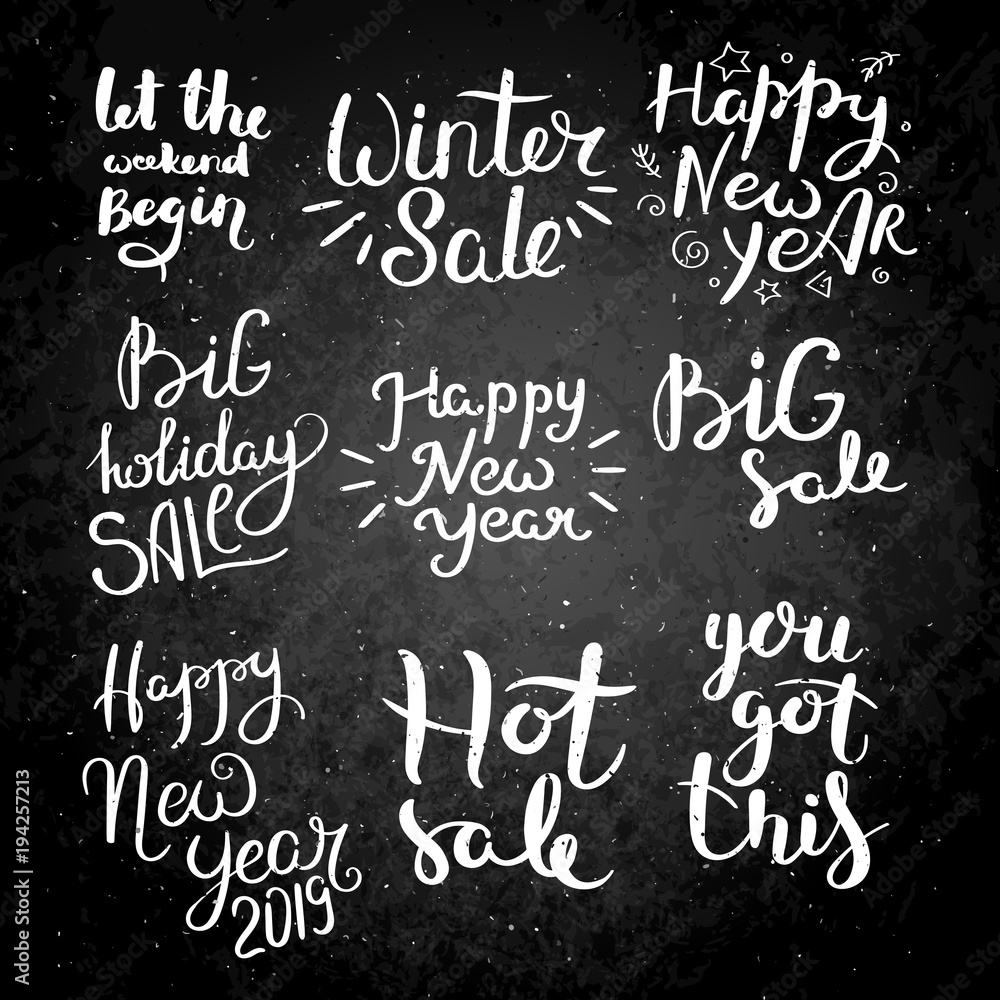 let the
weekend
Begin
Winter
Sale
Happy
New
yeAR
BiG
holiday
SALE
Happy
New
year
BiG
sale
Happy
New
year
2019
Hot
sale
you
got
this
Adobe Stock | #194257213